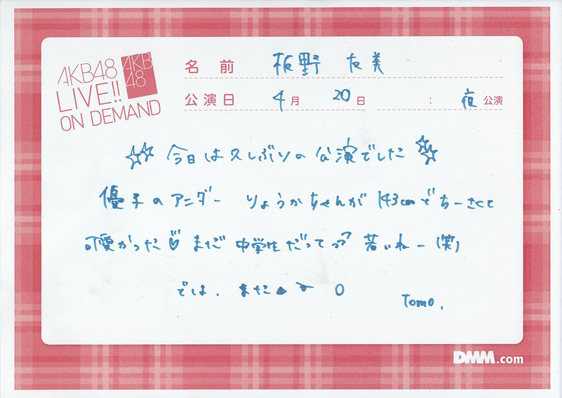 AKB48
LIVE!!
ON DEMAND
AKB
48
名前 板野友美
公演日 4月 20日 : 夜公演
☆☆ 今日は久しぶりの公演でした ☆☆
優子のアンダー りょうかちゃんが 143cmでちーさくて
可愛かった♡ まだ 中学生だって?? 若いねー(笑)
では、また
Tomo.
DMM.com